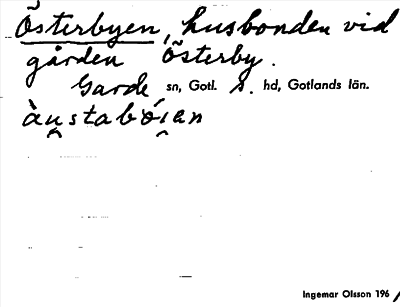 Österbyen, husbonden vid
gården Österby.
Garde sn, Gotl. s. hd, Gotlands län.
àu̯stabói̯en
Ingemar Olsson 196